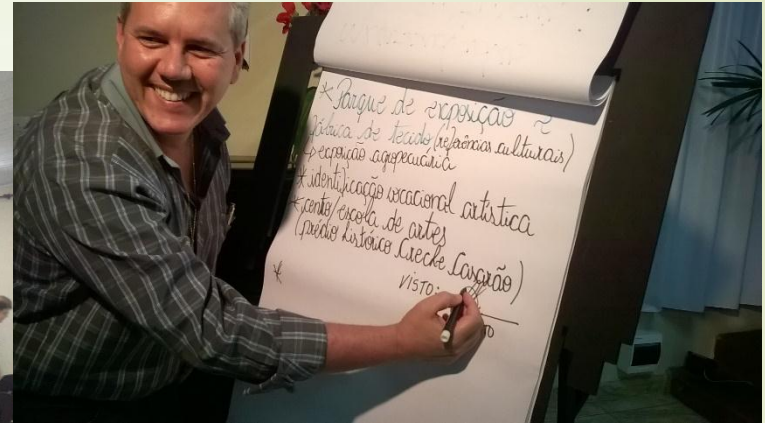 * Parque de exposição ~
fábrica de tecido (referências culturais)
→ exposição agropecuária
* identificação vocacional artística
* centro/escola de artes
(prédio histórico Creche Casarão)
*
VISTO: